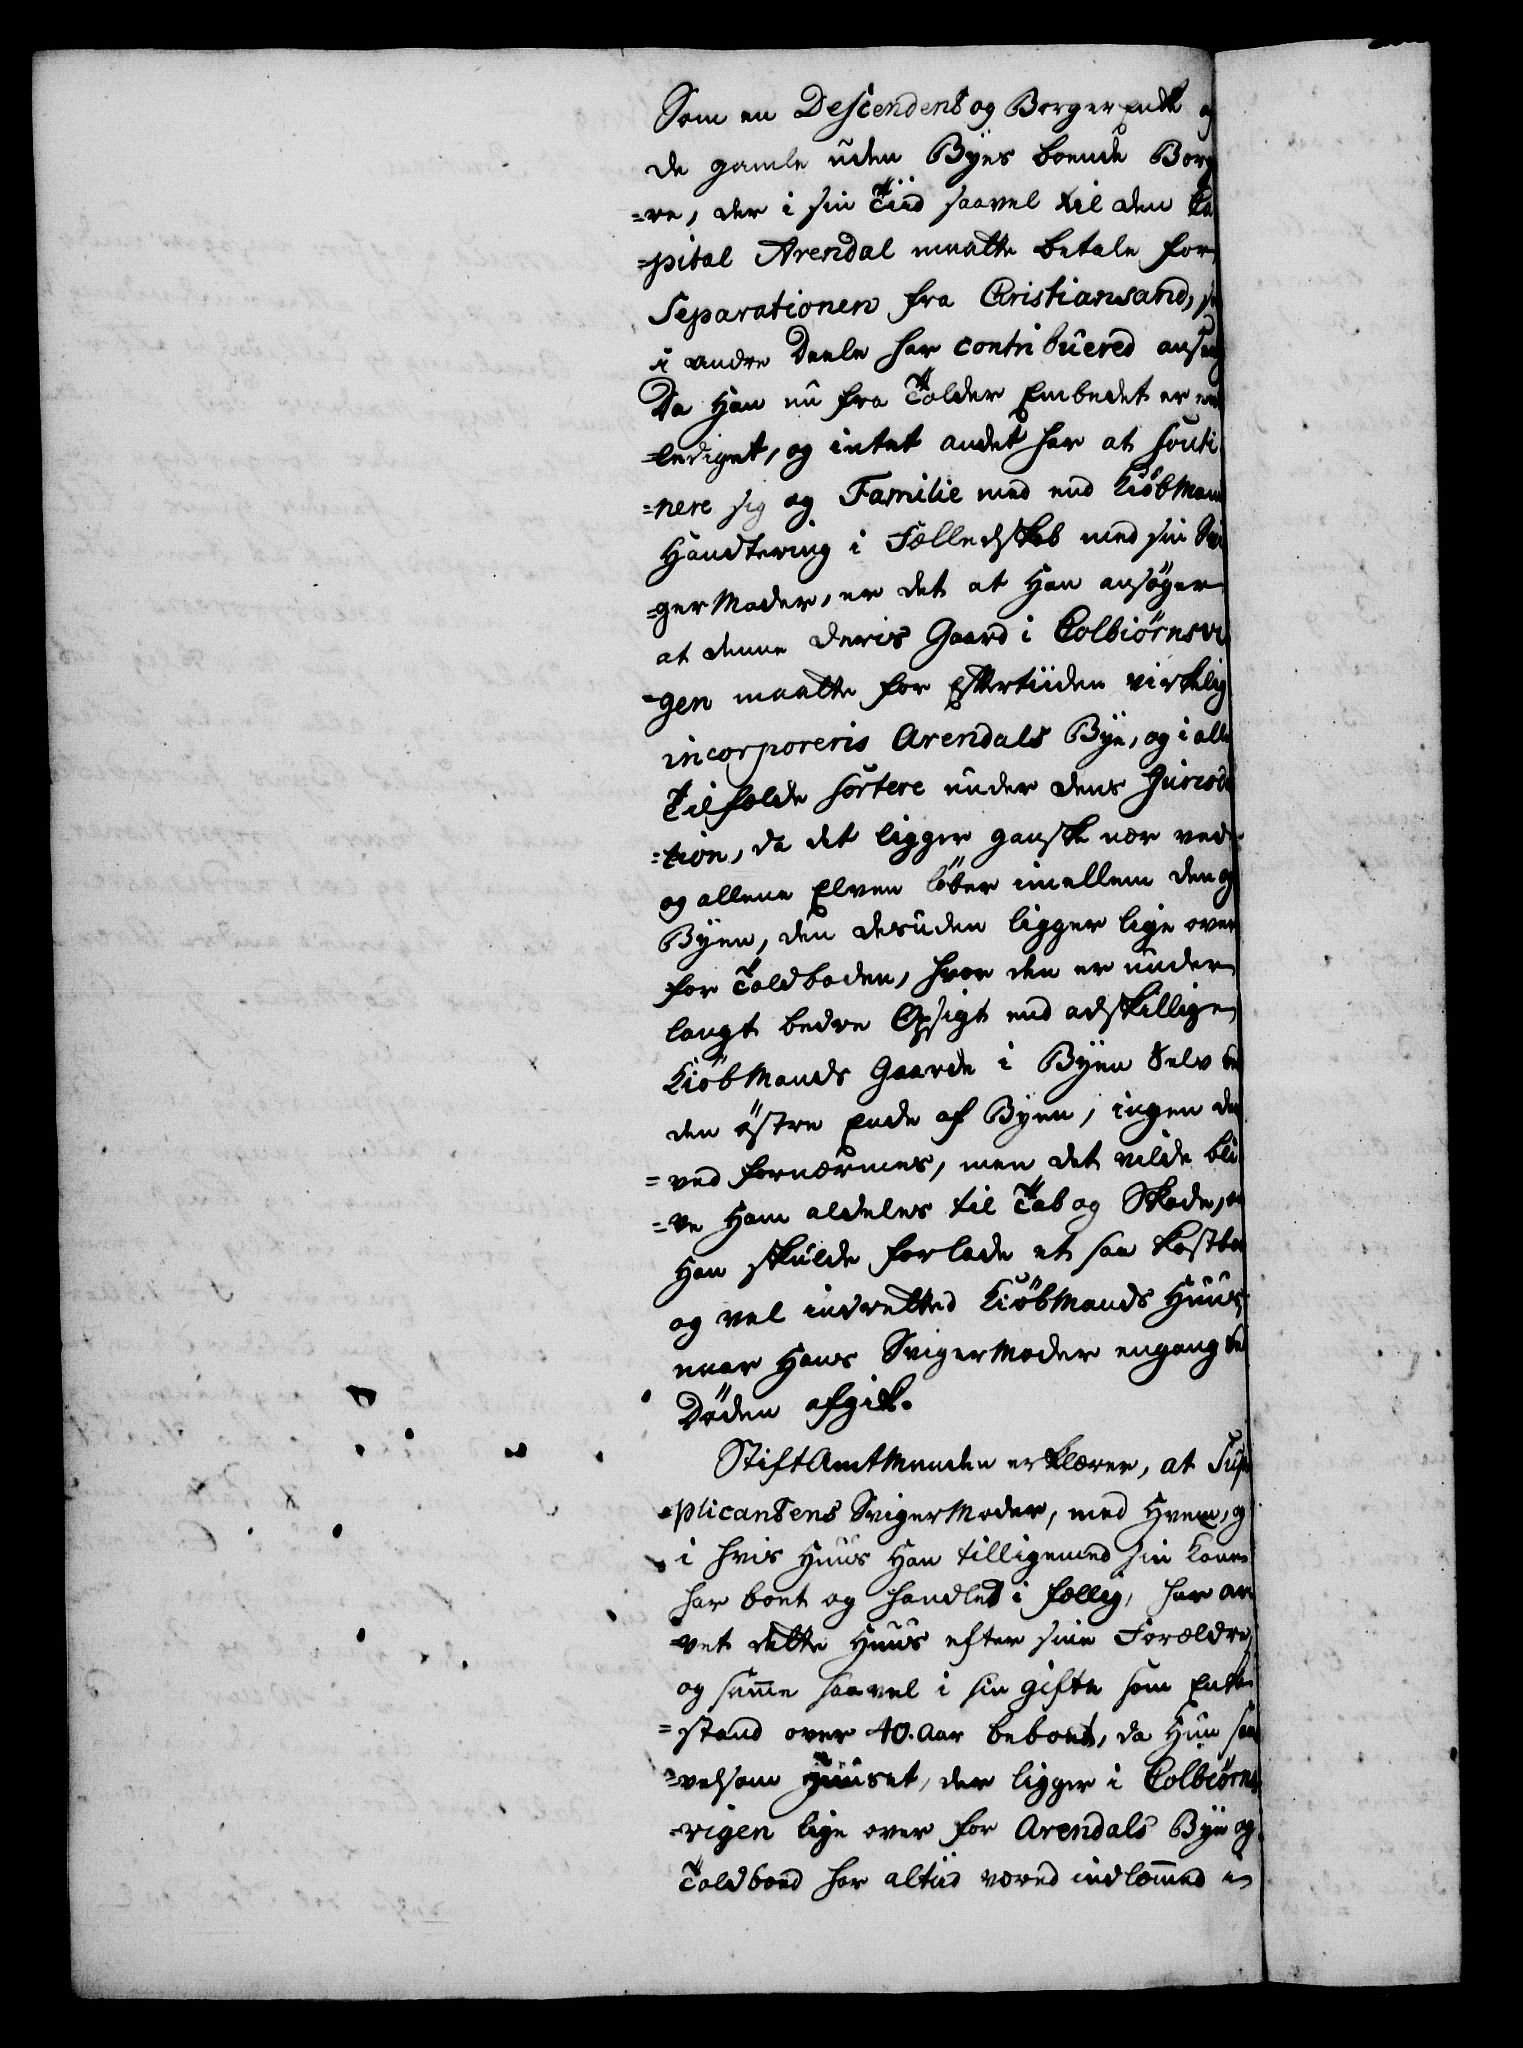 Som en Descendent og Borger Enke
de gamle uden Byes boende Borg
=re, der i sin Tiid saavel til den Ca
=pital Arendal maatte betale for
Separationen fra Christiansand,
i andre Deele har contribuered
Da Han nu fra Tolder Embedet er
=lediget, og intet andet har at souti
=nere sig og Familie med end Kiøbmand
Handtering i Fælledskab med sin Svi
=ger Moder, er det at Han ansøger
at denne Deris Gaard i Colbiørnsvi
=gen maatte for Eftertiiden virkelig
incorporeris Arendals Bye, og i alle
Tilfælde sortere under dens Jurisdi
=tion, da det ligger ganske nær ved
og allene Elven løber imellem den og
Byen, den desuden ligger lige over
for Toldboden, hvor den er under
langt bedre Opsigt end adskillige
Kiøbmands Gaarde i Byen Selv
den østre Ende af Byen, ingen der
=ved fornærmes, men det vilde bli
=ve Ham aldeles til Tab og Skade,
Han skulde forlade et saa kostba
og vel indretted Kiøbmands Huus,
naar Hans Sviger Moder engang ved
Døden afgik.
Stift Amtmanden erklærer, at Sup
=plicantens Sviger Moder, med Hvem, og
i hvis Huus Han tilligemed sin Kone
har boet og handlet i fællig, har ar
=vet dette Huus efter sine Forældre,
og samme saavel i sin gifte som Enke
=stand over 40. Aar beboet, da Hun saa
=velsom Huuset, der ligger i Colbiørns
=vigen lige over for Arendals Bye og
Toldboed har altiid været indlemmed i